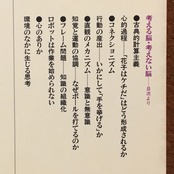 考える脳・考えない脳――目次より
●古典的計算主義
心的過程―「花子はケチだ」はどう形成されるか
●コネクショニズム
行動の産出――いかにして「手を挙げる」か
●直観のメカニズム――意識と無意識
知覚と運動の協調――なぜボールを打てるのか
●フレーム問題――知識の組織化
ロボットは作業を始められない
●心のありか
環境のなかに生じる思考